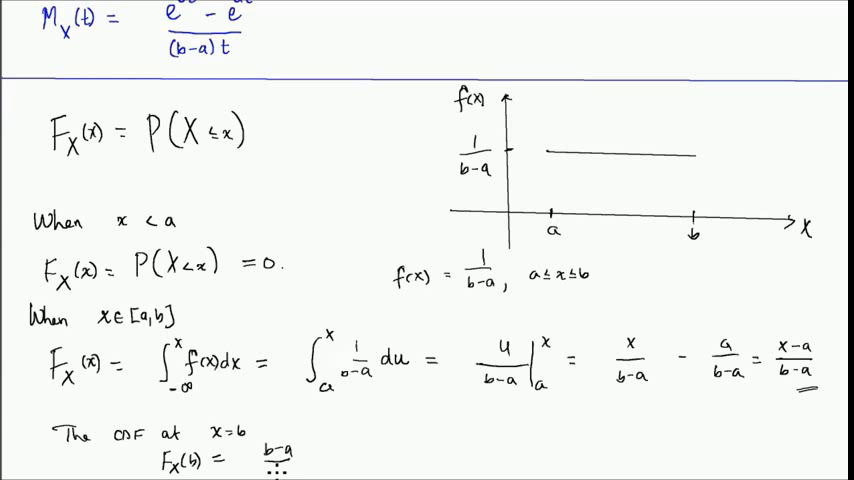 M_X(t) = e − e / (b-a)t
F_X(x) = P(X ≤ x)
f(x)
1/(b-a)
a b x
When x < a
F_X(x) = P(X < x) = 0.
f(x) = 1/(b-a), a ≤ x ≤ b
When x ∈ [a,b]
F_X(x) = ∫_{-∞}^{x} f(x)dx = ∫_{a}^{x} 1/(b-a) du = u/(b-a) |_{a}^{x} = x/(b-a) - a/(b-a) = (x-a)/(b-a)
The CDF at x=b
F_X(b) = b-a